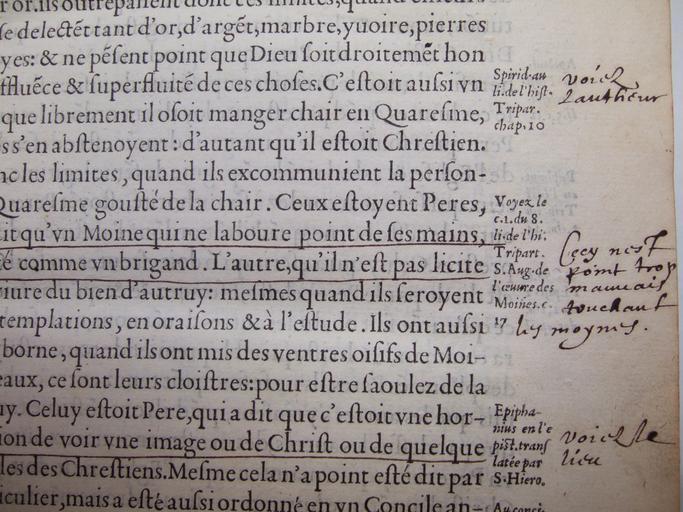 r or. ils outrepassent donc ces limites, quand
se delectẽt tant d'or, d'argẽt, marbre, yuoire, pierres
yes: & ne pẽsent point que Dieu soit droitemẽt hon
ffluẽce & superfluité de ces choses. C'estoit aussi vn
que librement il osoit manger chair en Quaresme,
s s'en abstenoyent: d'autant qu'il estoit Chrestien.
nc les limites, quand ils excommunient la person-
Quaresme gousté de la chair. Ceux estoyent Peres,
it qu'vn Moine qui ne laboure point de ses mains,
é comme vn brigand. L'autre, qu'il n'est pas licite
viure du bien d'autruy: mesmes quand ils seroyent
templations, en oraisons & à l'estude. Ils ont aussi
borne, quand ils ont mis des ventres oisifs de Moi-
eaux, ce sont leurs cloistres: pour estre saoulez de la
uy. Celuy estoit Pere, qui a dit que c'estoit vne hor-
ion de voir vne image ou de Christ ou de quelque
les des Chrestiens. Mesme cela n'a point esté dit par
iculier, mais a esté aussi ordonné en vn Concile an-
Spirid. au
li. de l'hist.
Tripar.
chap. 10
voiez
lautheur
Voyez le
c. 1. du 8.
li. de l'hi.
Tripart.
S. Aug. de
l'œuure des
Moines. c.
17
Cecy nest
point trop
mauuais
touchant
les moynes.
Epipha-
nius en l'e
pist. trans
latée par
S. Hiero.
voiez le
lieu
Au conci.